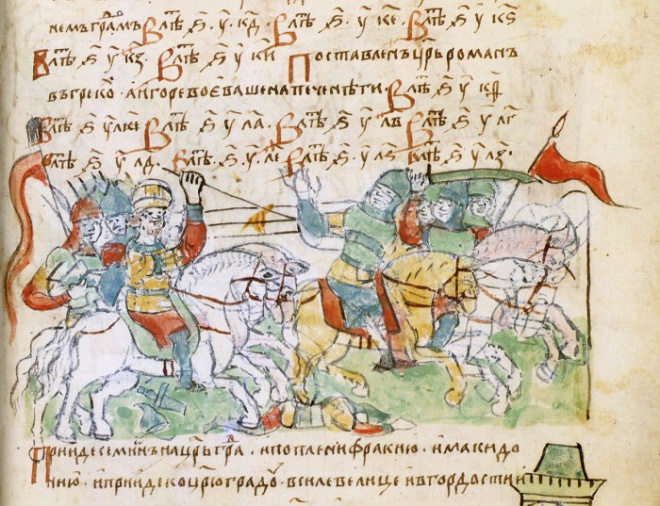 немъ градⷨѡъ В лѣⷮ ҂ѕ҃ · у҃ · к҃д · В лѣⷮ ҂ѕ҃ · у҃ к҃е · В лѣⷮ ҂ѕ҃ у҃ к҃ѕ
В лѣⷮ ҂ѕ҃ у҃ к҃з · В лѣⷮ ҂ѕ҃ у҃ к҃и Поставленъ цр҃ь романъ
въ греко · а игоре воеваше на печенѣги · В лѣⷮ ҂ѕ҃ у҃
В лѣⷮ ҂ѕ҃ у҃ В лѣⷮ ҂ѕ҃ у҃ л҃а · В лѣⷮ ҂ѕ҃ у҃ л҃в В лѣⷮ ҂ѕ҃ у҃ л҃г
В лѣⷮ ҂ѕ҃ у҃ л҃д · В лѣⷮ ҂ѕ҃ · у҃ · л҃е В лѣⷮ ҂ѕ҃ у҃ л҃ѕ В лѣⷮ ҂ѕ҃ у҃ л҃з ·
Прииде семинъ на цр҃ьграⷣ · и поплени фракию · и макидо
нию · и прииде ко цр҃юградѹ · в силе велице и в гордости